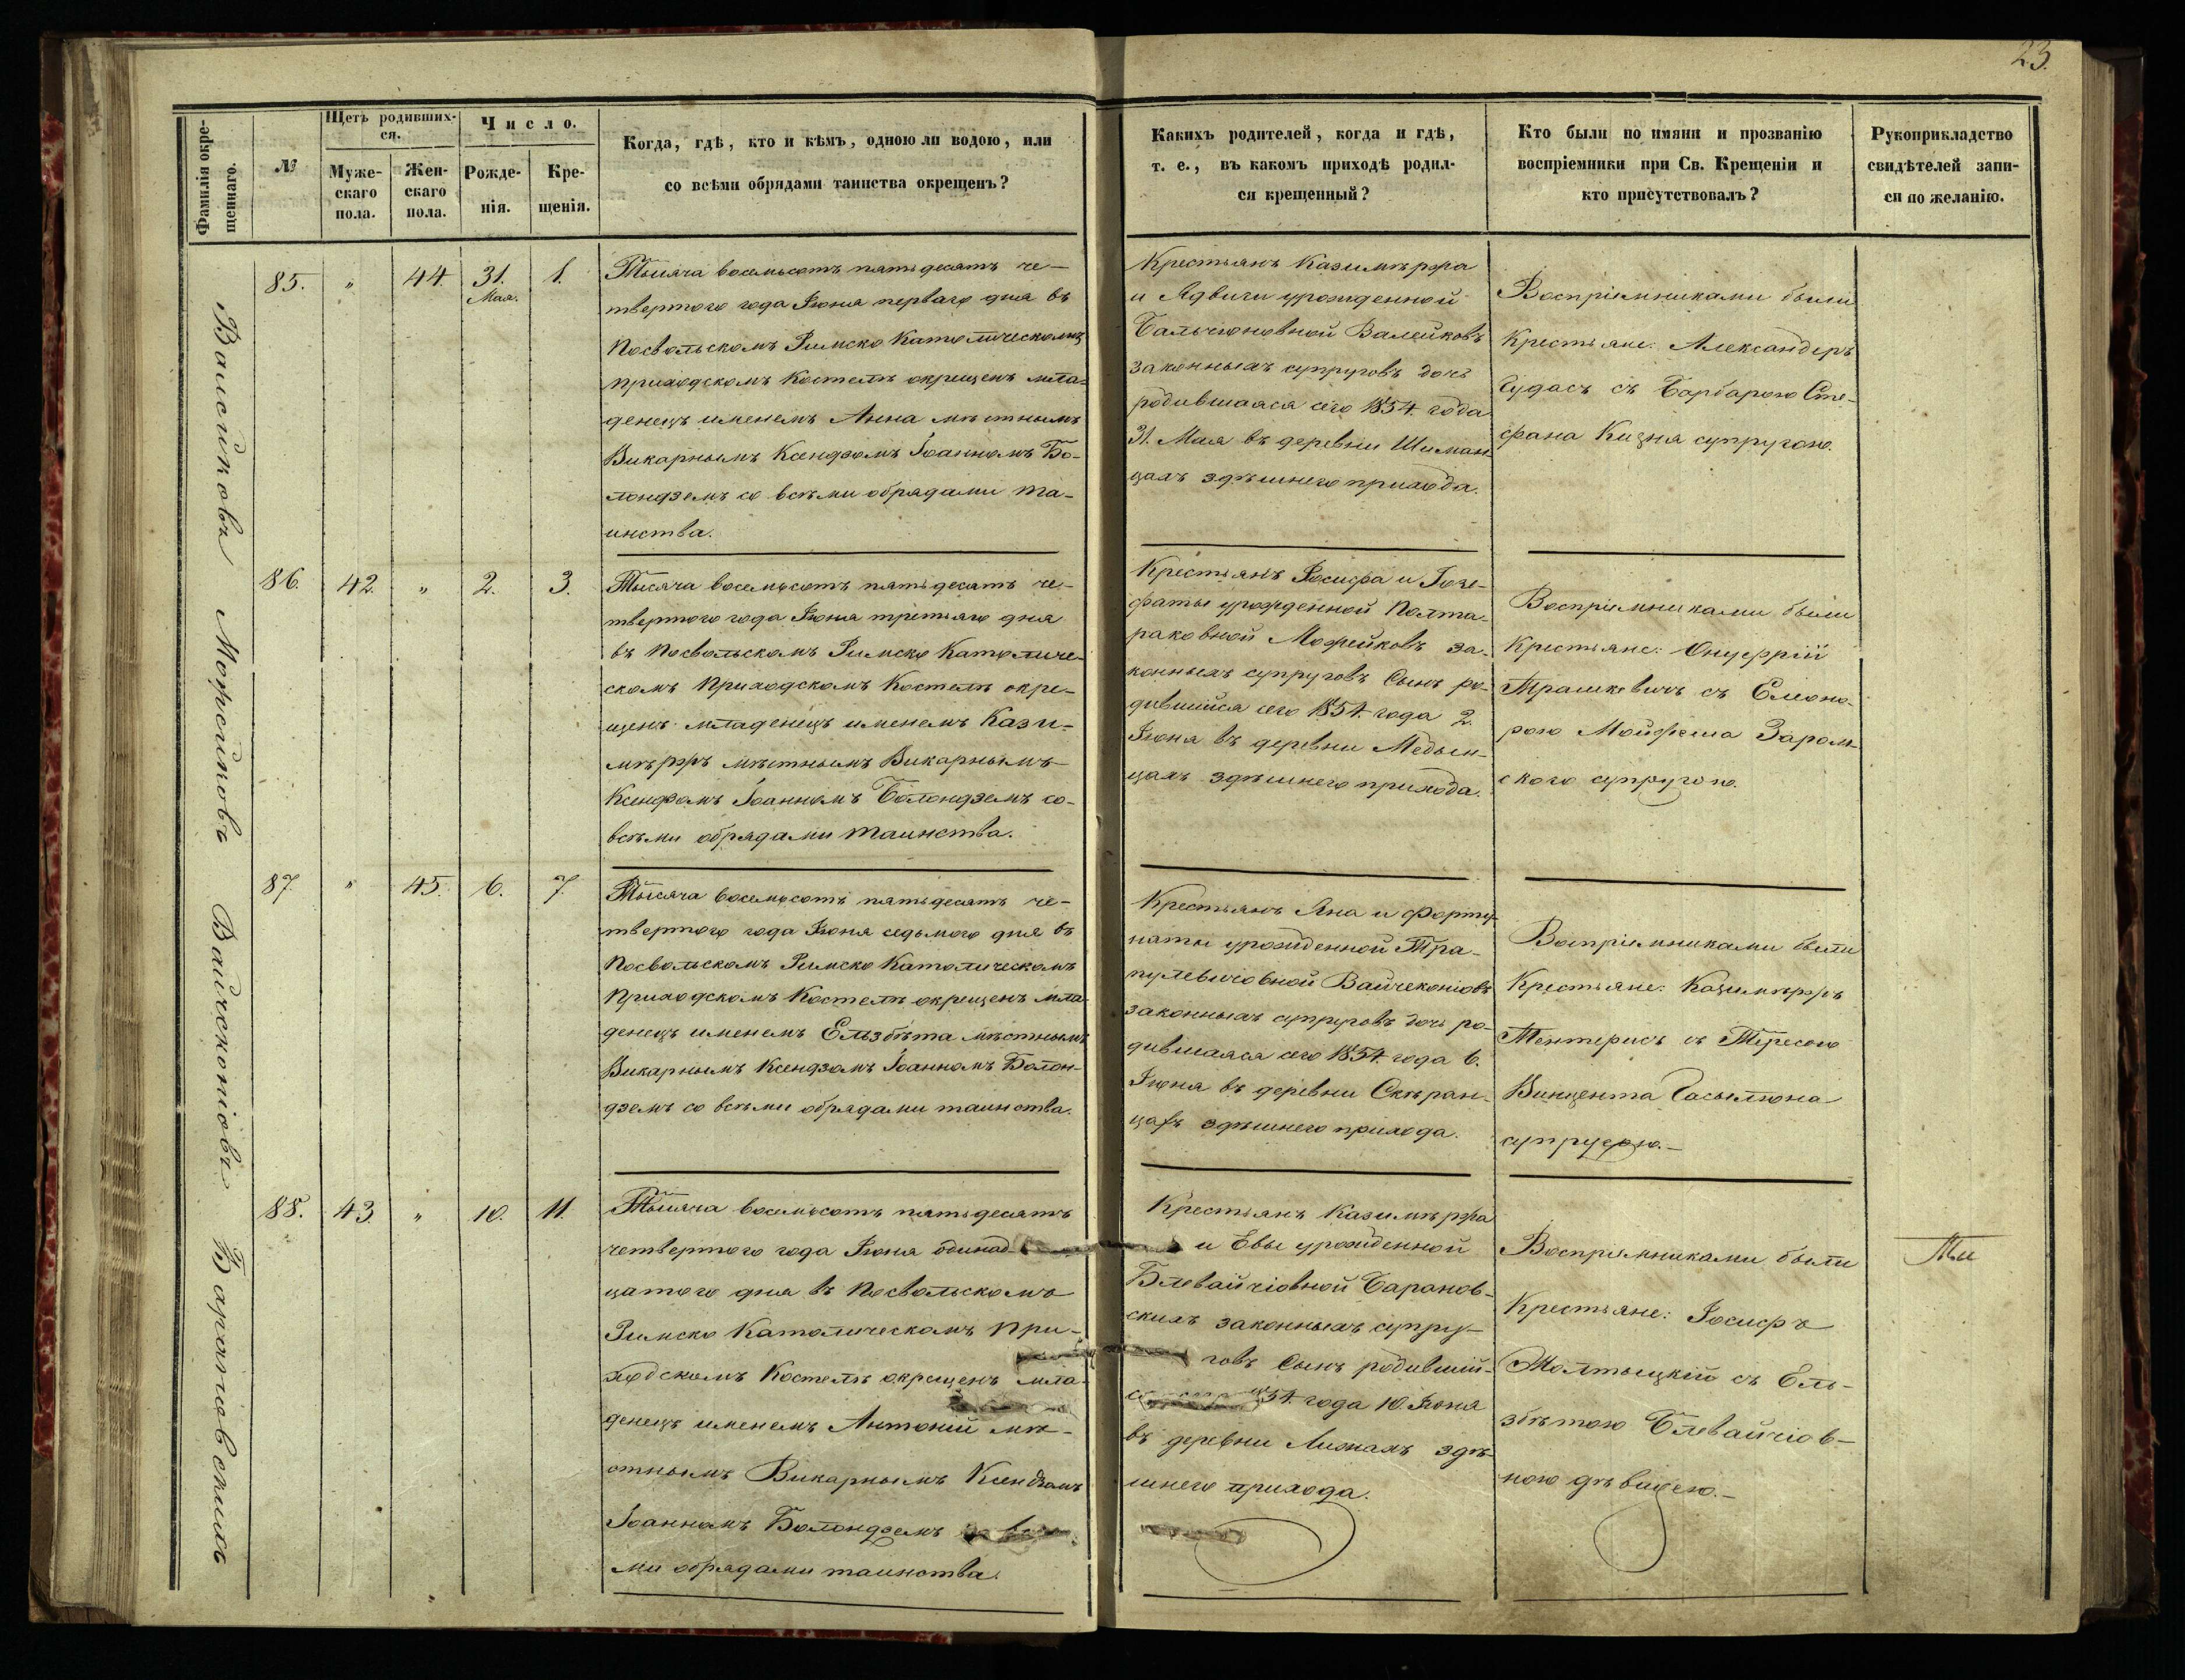 23.
Фамилія окре-
щеннаго.
№
Щетъ родивших-
ся.
Муже-
скаго
пола.
Жен-
скаго
пола.
Число.
Рожде-
нія.
Кре-
щенія.
Когда, гдѣ, кто и кѣмъ, одною ли водою, или
со всѣми обрядами таинства окрещенъ?
Какихъ родителей, когда и гдѣ,
т. е., въ какомъ приходѣ родил-
ся крещенный?
Кто были по имяни и прозванію
воспріемники при Св. Крещеніи и
кто присутствовалъ?
Рукоприкладство
свидѣтелей запи-
си по желанію.
Валейковъ
85.
"
44.
31.
Мая.
1.
Тысяча восемьсотъ пятьдесятъ че-
твертого года Іюня перваго дня въ
Посвольскомъ Римско Католическомъ
приходскомъ Костелѣ окрещенъ мла-
денецъ именемъ Анна мѣстнымъ
Викарнымъ Ксендзомъ Іоанномъ Бо-
лондземъ со всѣми обрядами та-
инства.
Крестьянъ Казимѣржа
и Ядвиги урожденной
Бальчюновной Валейковъ
законныхъ супруговъ дочь
родившаяся сего 1854. года
31. Мая въ деревни Шиман
цахъ здѣшнего прихода.
Воспріемниками были
Крестьяне: Александеръ
Чудасъ съ Барбарою Сте-
фана Кизня супругою.
Можейковъ
86.
42.
"
2.
3.
Тысяча восемьсотъ пятьдесятъ че-
твертого года Іюня третьяго дня
въ Посвольскомъ Римско Католиче-
скомъ Приходскомъ Костелѣ окре-
щенъ младенецъ именемъ Кази-
мѣржъ мѣстнымъ Викарнымъ
Ксендзомъ Іоанномъ Болондземъ со-
всѣми обрядами таинства.
Крестьянъ Іосифа и Іозе-
фаты урожденной Полта-
раковной Можейковъ за-
конныхъ супруговъ Сынъ ро-
дившійся сего 1854. года 2.
Іюня въ деревни Медын-
цахъ здѣшнего прихода.
Воспріемниками были
Крестьяне: Онуфрій
Трашкевичъ съ Елеоно-
рою Мойжеша Заром-
ского супругою.
Вайчеконіовъ
87.
"
45.
6.
7.
Тысяча восемьсотъ пятьдесятъ че-
твертого года Іюня седьмого дня въ
Посвольскомъ Римско Католическомъ
Приходскомъ Костелѣ окрещенъ мла
денецъ именемъ Ельзбѣта мѣстнымъ
Викарнымъ Ксендзомъ Іоанномъ Болон-
дземъ со всѣми обрядами таинства.
Крестьянъ Яна и Форту-
наты урожденной Тра-
пулевичовной Вайчеконіовъ
законныхъ супруговъ дочь ро-
дившаяся сего 1854. года 6.
Іюня въ деревни Скѣран-
цахъ здѣшнего прихода.
Воспріемниками были
Крестьяне: Казимѣржъ
Ментерисъ съ Тересою
Винцента Гасылюна
супругою.
Барановскихъ
88.
43.
"
10.
11.
Тысяча восемьсотъ пятьдесятъ
четвертого года Іюня одинад
цатого дня въ Посвольскомъ
Римско Католическомъ При-
ходскомъ Костелѣ окрещенъ мла-
денецъ именемъ Антоній мѣ-
стнымъ Викарнымъ Ксендзомъ
Іоанномъ Болондземъ
ми обрядами таинства.
Крестьянъ Казимѣржа
и Евы урожденной
Блевайчіовной Баранов-
скихъ законныхъ супру-
говъ Сынъ родившій-
54. года 10. Іюня
въ деревни Лижахъ здѣ-
шнего прихода.
Воспріемниками были
Крестьяне: Іосифъ
Жолтыцкій съ Ель-
збѣтою Блевайчіов-
ною дѣвицею.